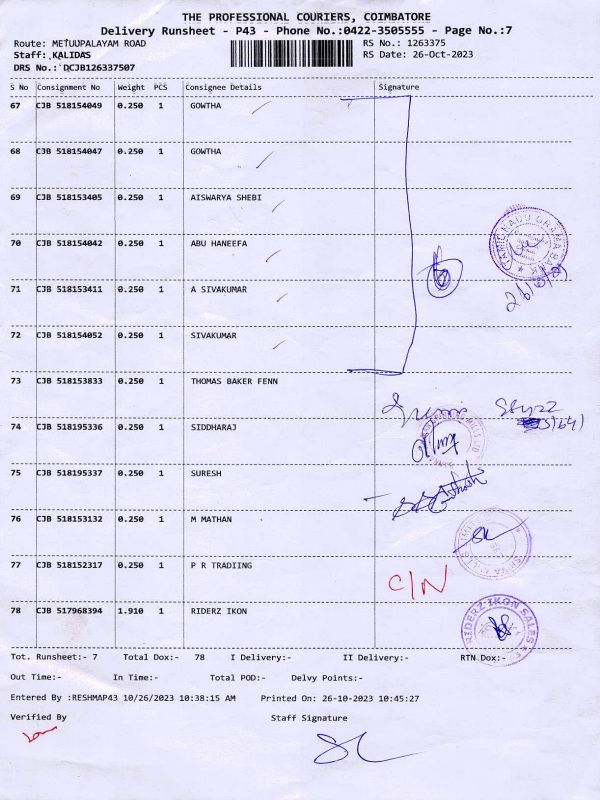 THE PROFESSIONAL COURIERS, COIMBATORE
Delivery Runsheet - P43 - Phone No.:0422-3505555 - Page No.:7
Route: METUUPALAYAM ROAD RS No.: 1263375
Staff: KALIDAS RS Date: 26-Oct-2023
DRS No.: DCJB126337507
S No Consignment No Weight PCS Consignee Details Signature
67 CJB 518154049 0.250 1 GOWTHA
68 CJB 518154047 0.250 1 GOWTHA
69 CJB 518153405 0.250 1 AISWARYA SHEBI
70 CJB 518154042 0.250 1 ABU HANEEFA
TAMIL NADU GRAMA BANK
71 CJB 518153411 0.250 1 A SIVAKUMAR
72 CJB 518154052 0.250 1 SIVAKUMAR
73 CJB 518153833 0.250 1 THOMAS BAKER FENN
74 CJB 518195336 0.250 1 SIDDHARAJ
75 CJB 518195337 0.250 1 SURESH
76 CJB 518153132 0.250 1 M MATHAN
77 CJB 518152317 0.250 1 P R TRADIING
C/N
78 CJB 517968394 1.910 1 RIDERZ IKON
RIDERZ IKON SALES
Tot. Runsheet:- 7 Total Dox:- 78 I Delivery:- II Delivery:- RTN Dox:-
Out Time:- In Time:- Total POD:- Delvy Points:-
Entered By :RESHMAP43 10/26/2023 10:38:15 AM Printed On: 26-10-2023 10:45:27
Verified By Staff Signature